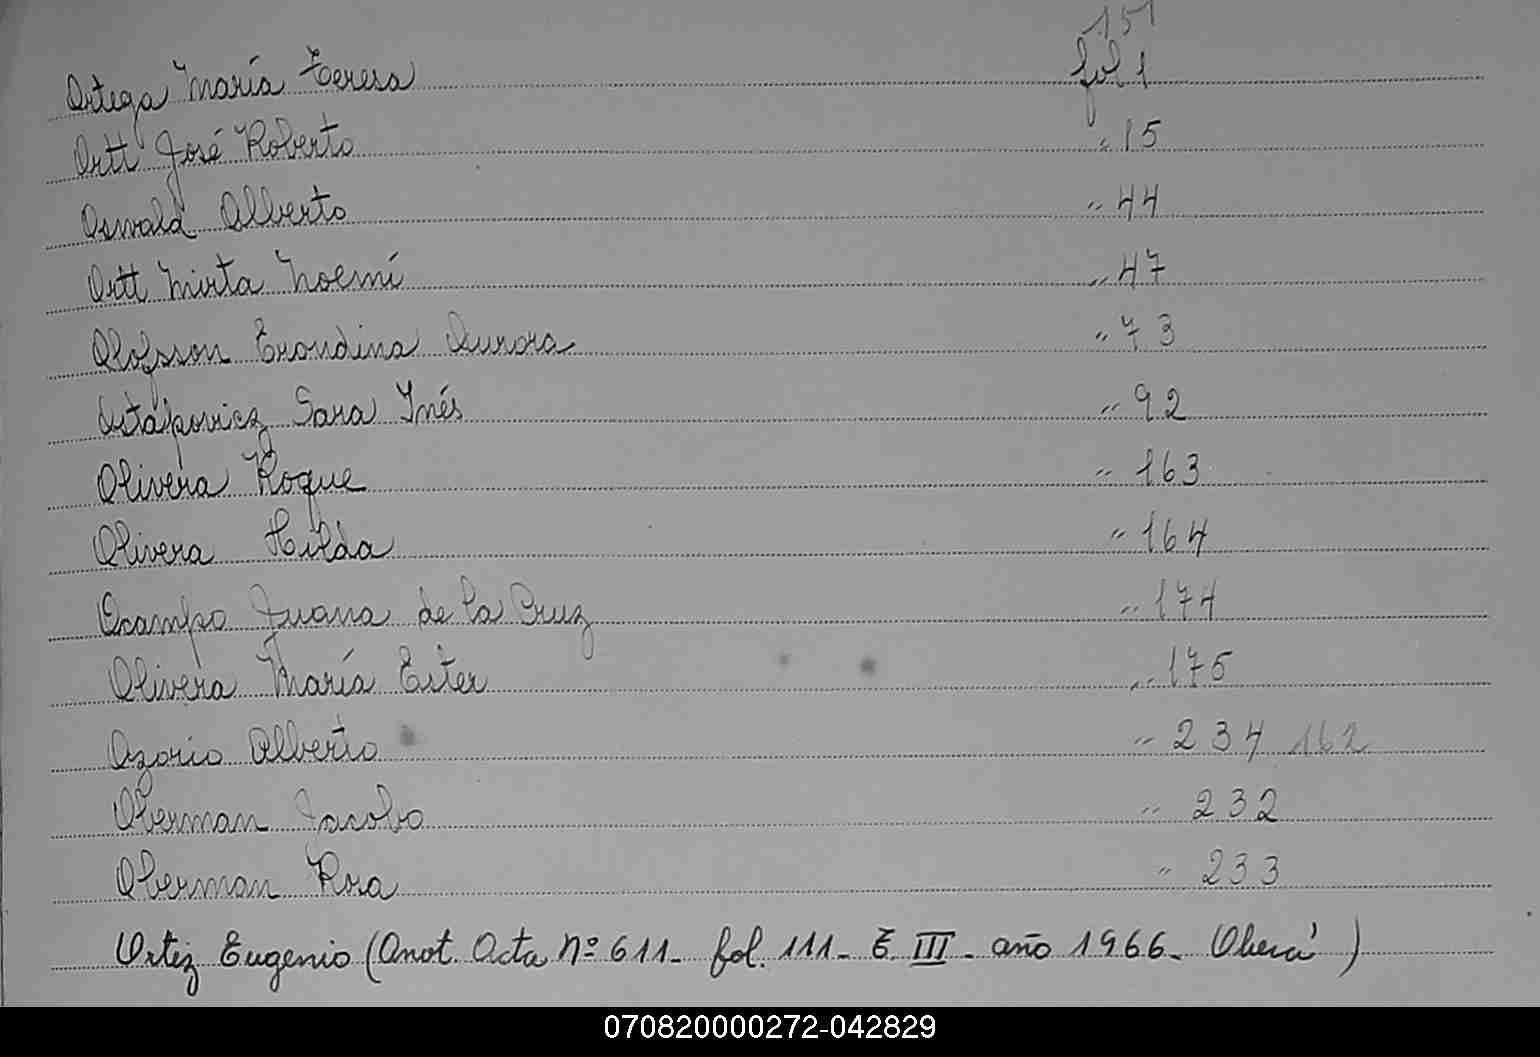 151
Ortega María Teresa fol 1
Ortt José Roberto " 15
Oswald Alberto " 44
Ortt Mirta Noemí " 47
Olofsson Erondina Aurora " 73
Ostapovicz Sara Inés " 92
Olivera Roque " 163
Olivera Hilda " 164
Ocampo Juana de la Cruz " 174
Olivera María Ester " 175
Ozorio Alberto " 234 162
Oberman Jacobo " 232
Oberman Rosa " 233
Ortiz Eugenio (Anot. Acta Nº 611- fol. 111- T. III - año 1966- Oberá)
070820000272-042829